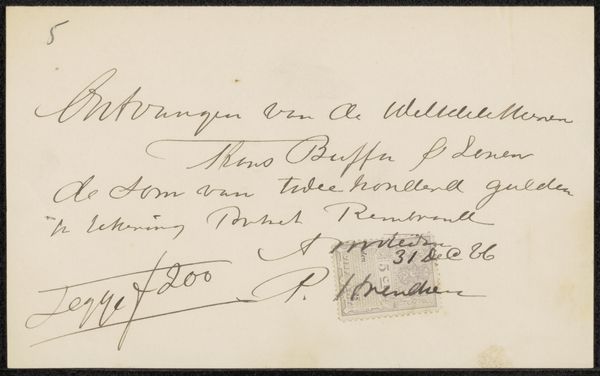 5
Ontvangen van de WelEdele Heeren
Frans Buffa & Zonen
de som van twee honderd gulden
Rekening Rembrandt
Amsterdam
31 Dec 86
Zegge f 200
P.
5